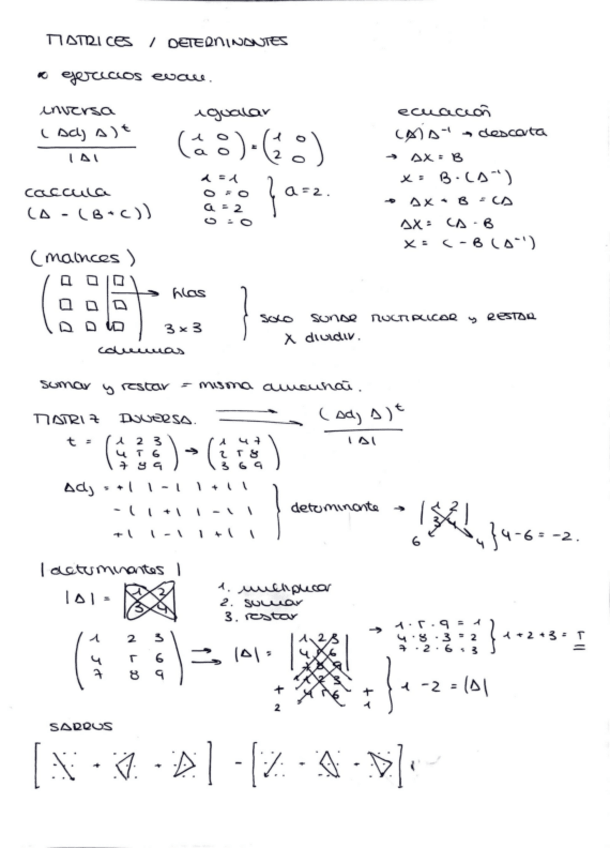 MATRICES / DETERMINANTES
* ejercicios evau.
inversa
(Adj A)^t
|A|
calcula
(A - (B+C))
igualar
(1 0 / a 0) = (1 0 / 2 0)
1 = 1
0 = 0
a = 2
0 = 0
} a = 2.
ecuación
(A) A⁻¹ → descarta
→ AX = B
X = B · (A⁻¹)
→ AX + B = CA
AX = CA - B
X = C - B (A⁻¹)
(matrices)
filas
3 x 3
columnas
} solo sumar multiplicar y restar
X dividir.
sumar y restar = misma dimensión.
MATRIZ INVERSA. → (Adj A)^t / |A|
t = (1 2 3 / 4 5 6 / 7 8 9) → (1 4 7 / 2 5 8 / 3 6 9)
Adj = +| | -| | +| |
-| | +| | -| |
+| | -| | +| |
} determinante → |1 2 / 3 4|
6 4 } 4-6 = -2.
|determinantes|
|A| = 1 2 / 3 4
1. multiplicar
2. sumar
3. restar
(1 2 3 / 4 5 6 / 7 8 9) → |A| = |1 2 3 / 4 5 6 / 7 8 9|
1 2 3
4 5 6
+ 2
+ 1
→ 1 · 5 · 9 = 1
4 · 8 · 3 = 2
7 · 2 · 6 = 3
} 1+2+3 = 5
} 1 - 2 = |A|
SARRUS
[ + + ] - [ - - ]